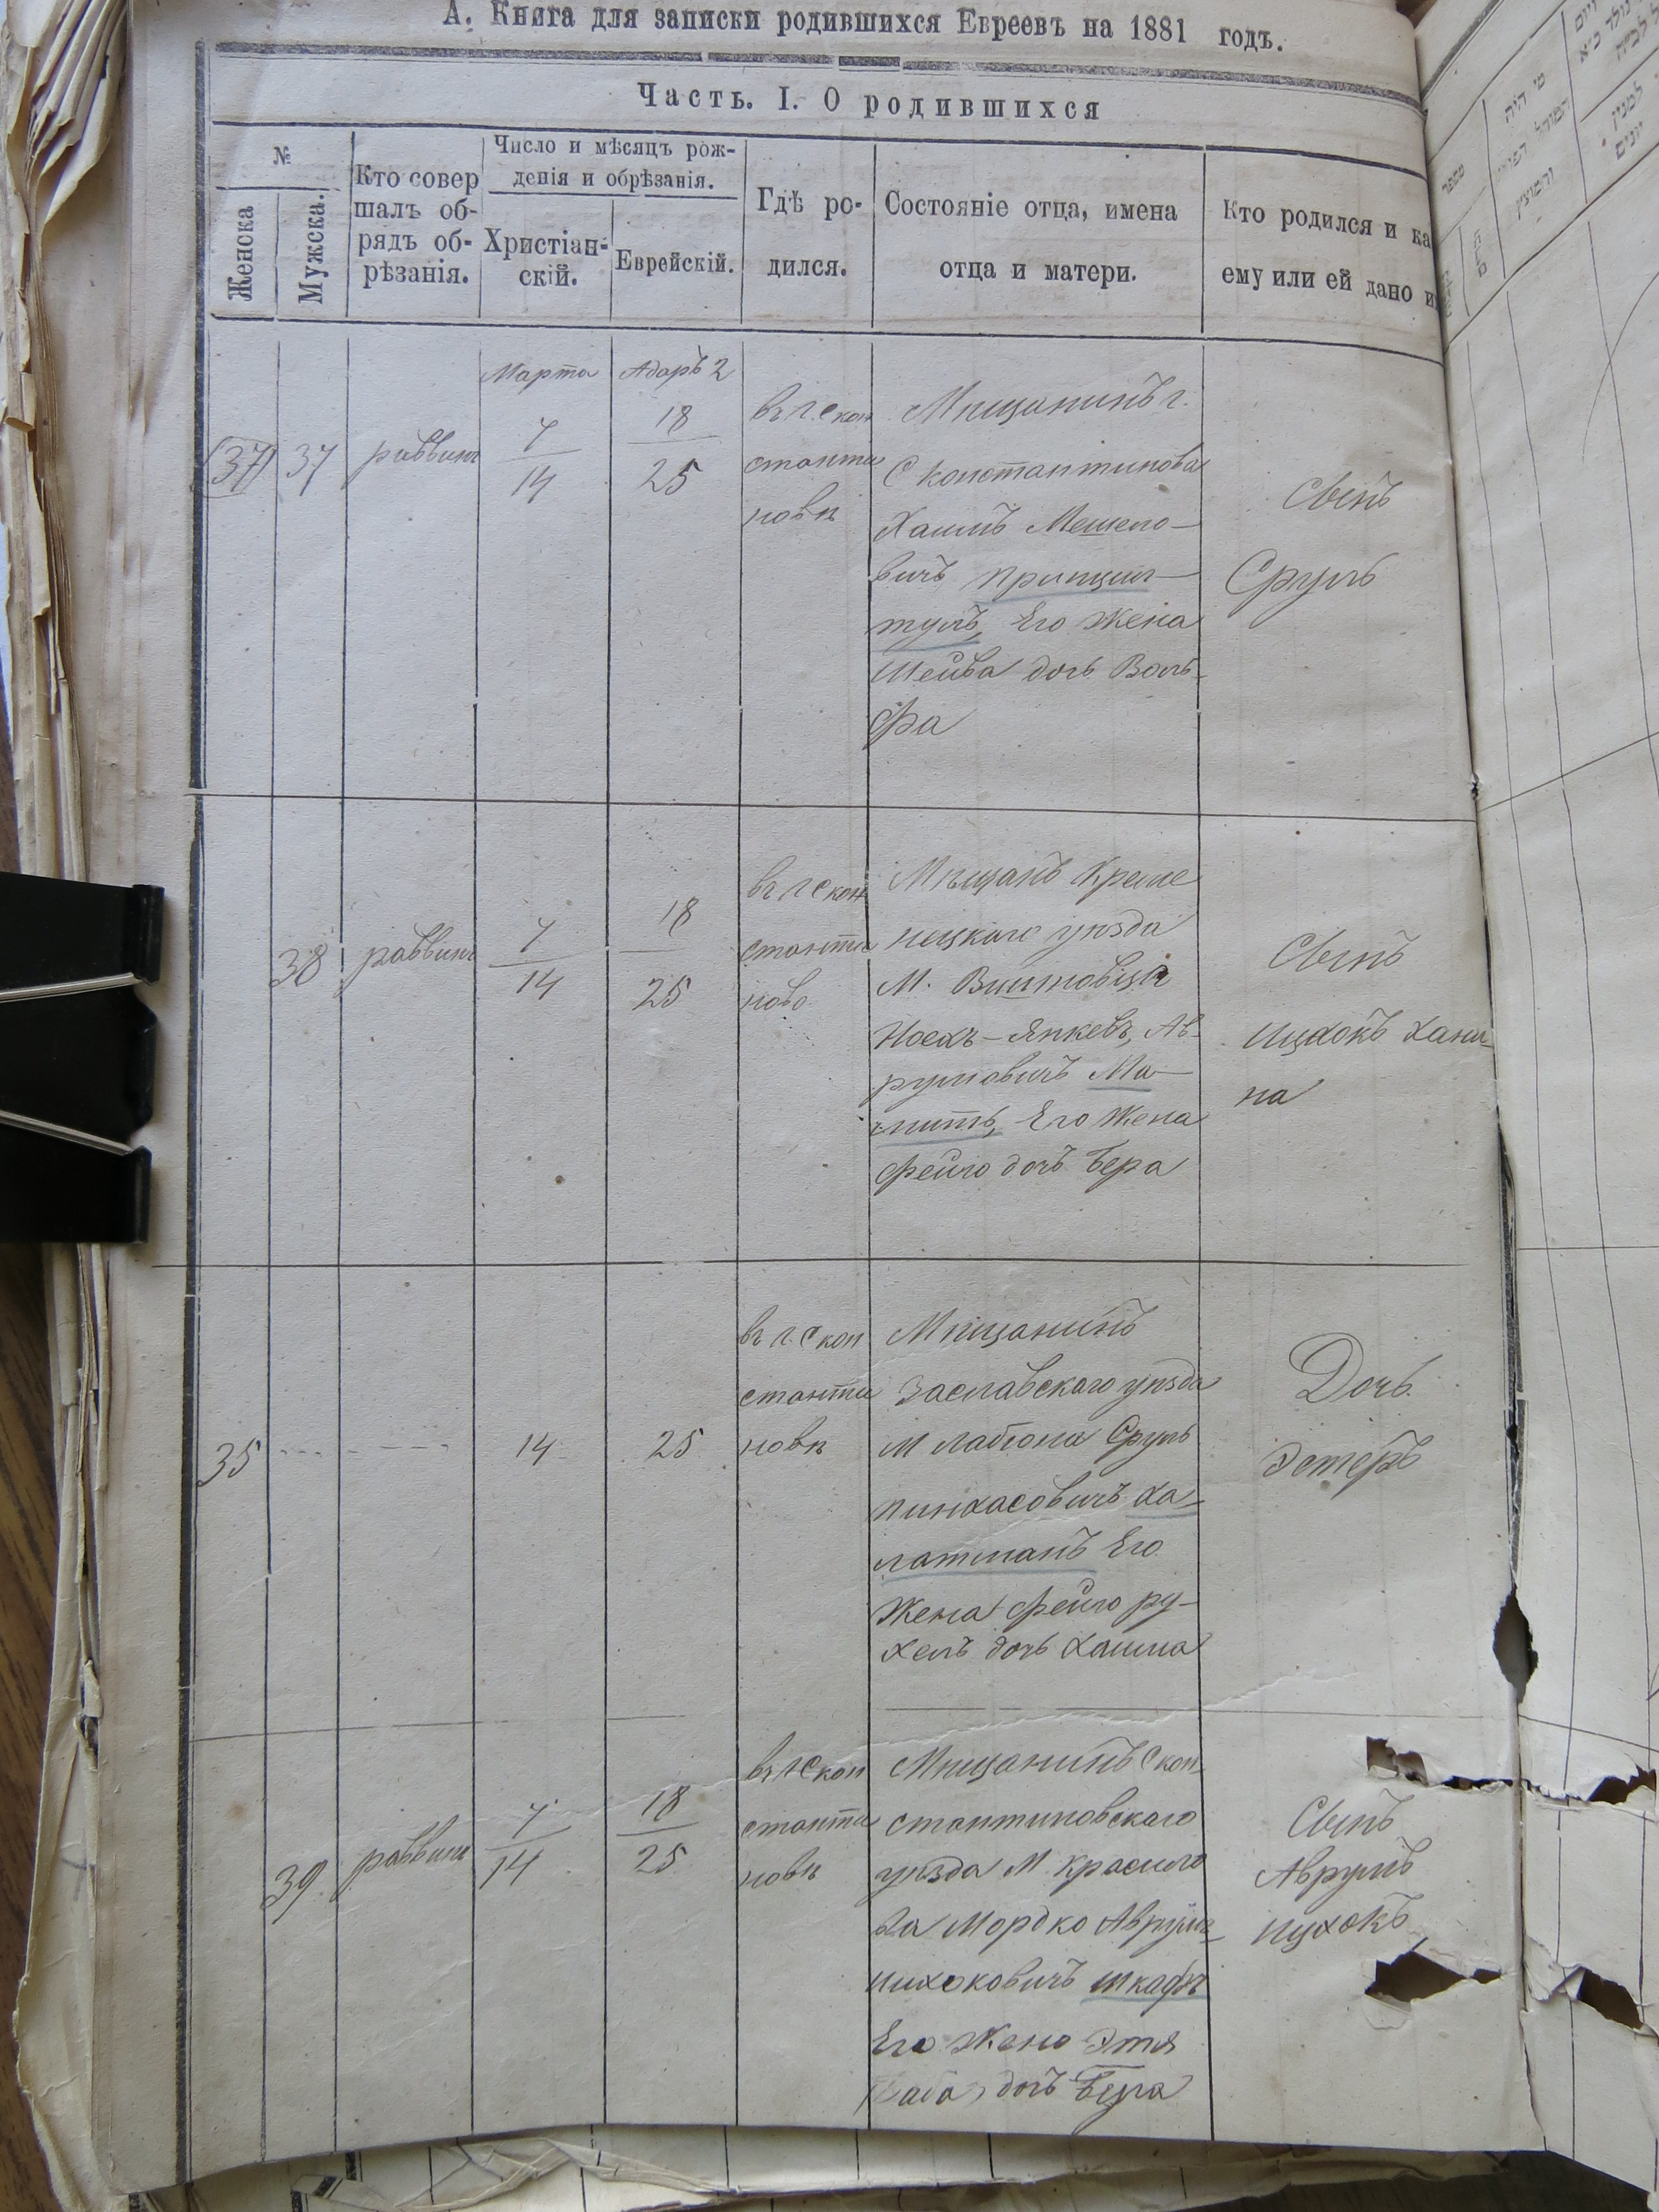 А. Книга для записки родившихся Евреевъ на 1881 годъ.
Часть. I. О родившихся
№
Женска
Мужска.
Кто совер
шалъ об-
рядъ об-
рѣзанія.
Число и мѣсяцъ рож-
денія и обрѣзанія.
Христіан-
скій.
Еврейскій.
Гдѣ ро-
дился.
Состояніе отца, имена
отца и матери.
Кто родился и ка
ему или ей дано и
(37)
37
раввинъ
Марта
7
14
Адаръ 2
18
25
въ г. Скон
станти
новѣ
Мѣщанинъ г.
С константинова
Хаимъ Мешело-
вичъ
тулъ, Его жена
Шейва дочь Воль-
фа
Сынъ
Сруль
38
раввинъ
7
14
18
25
въ г Скон
станти
ново
Мѣщанъ Креме
нецкаго уѣзда
М.
Ноехъ-Янкевъ, Ав-
румовичъ Ма-
Его жена
Фейго дочъ Бера
Сынъ
Ицхокъ Хани-
на
35
14
25
въ г. Скон
станти
новѣ
Мѣщанинъ
Заславскаго уѣзда
М Лабгони Сруль
пинхасовичъ Ха-
латманъ Его
Жена Фейго ру-
хель дочь Хаима
Дочь
Эстеръ
39
раввинъ
7
14
18
25
въ г Скон
станти
новѣ
Мѣщанинъ Скон
стантиновскаго
уѣзда М. Красило
ва Мордко Аврумъ-
ицхоковичъ шкафъ
Его Жено Этя
дочъ
Сынъ
Аврумъ
ицхокъ